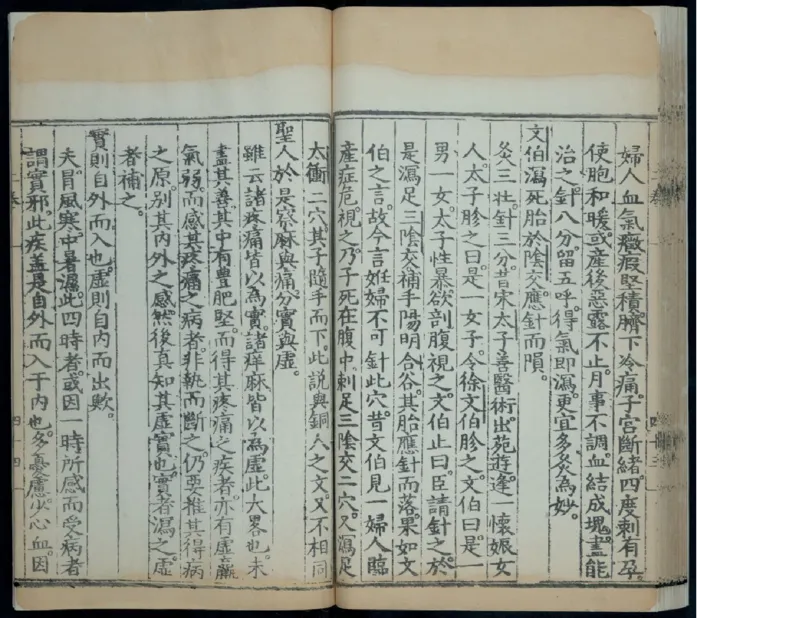 婦人血氣癥瘕堅積臍下冷痛子宮斷緒四度刺有孕
使胞和暖或產後惡露不止月事不調血結成塊盡能
治之針八分留五呼得氣即瀉更宜多灸為妙
文伯瀉死胎於陰交應針而隕
灸三壯針三分昔宋太子善醫術出苑遊逢一懷娠女
人太子胗之曰是一女子令徐文伯胗之文伯曰是一
男一女太子性暴欲剖腹視之文伯止曰臣請針之於
是瀉足三陰交補手陽明合谷其胎應針而落果如文
伯之言故今言姙婦不可針此穴昔文伯見一婦人臨
產症危視之乃子死在腹中刺足三陰交二穴又瀉足
太衝二穴其子隨手而下此說與銅人之文又不相同
聖人於是察麻與痛分實與虛
雖云諸疼痛皆以為實諸痒麻皆以為虛此大畧也未
盡其善其中有豊肥堅而得其疼痛之疾者亦有虛羸
氣弱而感其疼痛之病者非執而斷之仍要推其得病
之原別其內外之感然後真知其虛實也實者瀉之虛
者補之
實則自外而入也虛則自內而出歟
夫冒風寒中暑濕此四時者或因一時所感而受病者
謂實邪此疾盖是自外而入于內也多憂慮少心血因